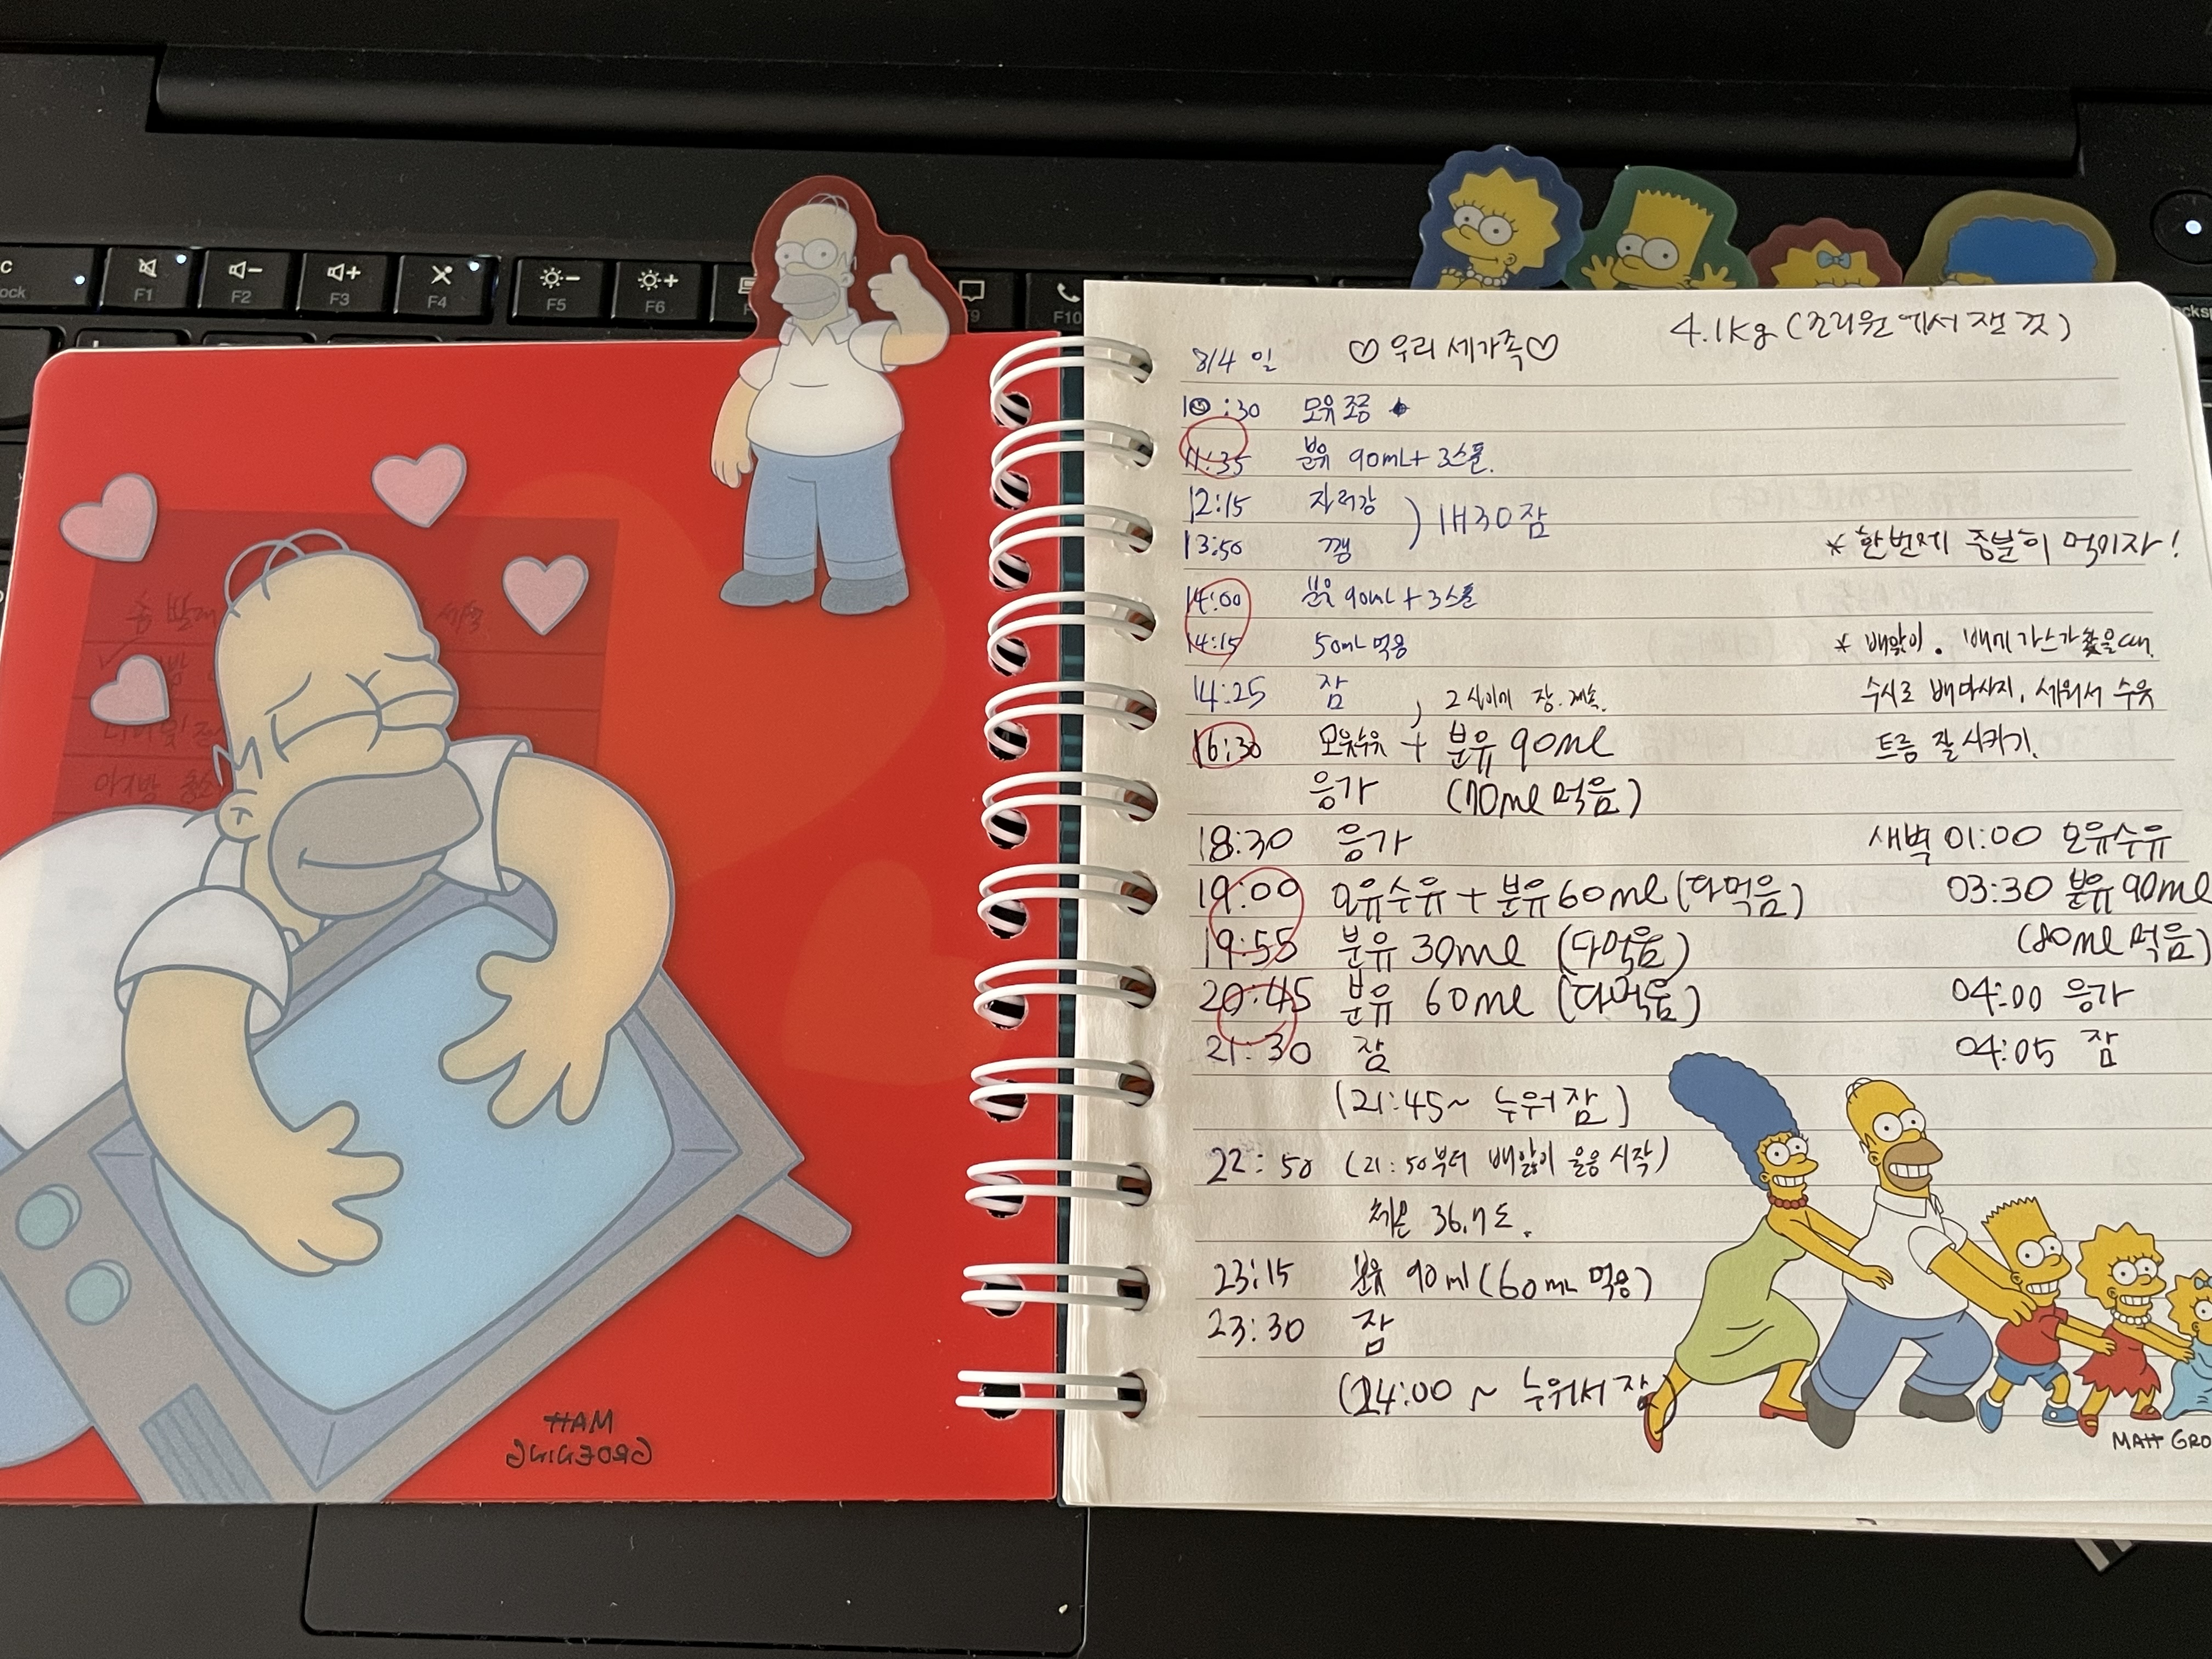 8/4 일
♡ 우리 세가족♡
4.1kg (조리원에서 잰 것)
10:30 모유 조금
11:35 분유 90mL+ 3스푼.
12:15 자러감
) 1H30 잠
13:50 깸
* 한번에 충분히 먹이자!
14:00 분유 90mL + 3스푼
14:15 50mL 먹음
* 배앓이. 배에 가스가 찼을때.
14:25 잠 , 2시이에 잠. 계속.
수시로 배마사지, 세워서 수유
16:30 모유수유 + 분유 90ml
트름 잘 시키기.
응가 (70ml 먹음)
18:30 응가
새벽 01:00 모유수유
19:00 모유수유 + 분유 60ml (다먹음)
03:30 분유 90ml
19:55 분유 30ml (다먹음)
(80ml 먹음)
20:45 분유 60ml (다먹음)
04:00 응가
21:30 잠
04:05 잠
(21:45~ 누워잠)
22:50 (21:50부터 배앓이 울음 시작)
체온 36.7도.
23:15 분유 90ml (60mL 먹음)
23:30 잠
(24:00 ~ 누워서 잠)
MATT GROENING
MATT GRO
F1
F2
F3
F4
F5
F6
F10